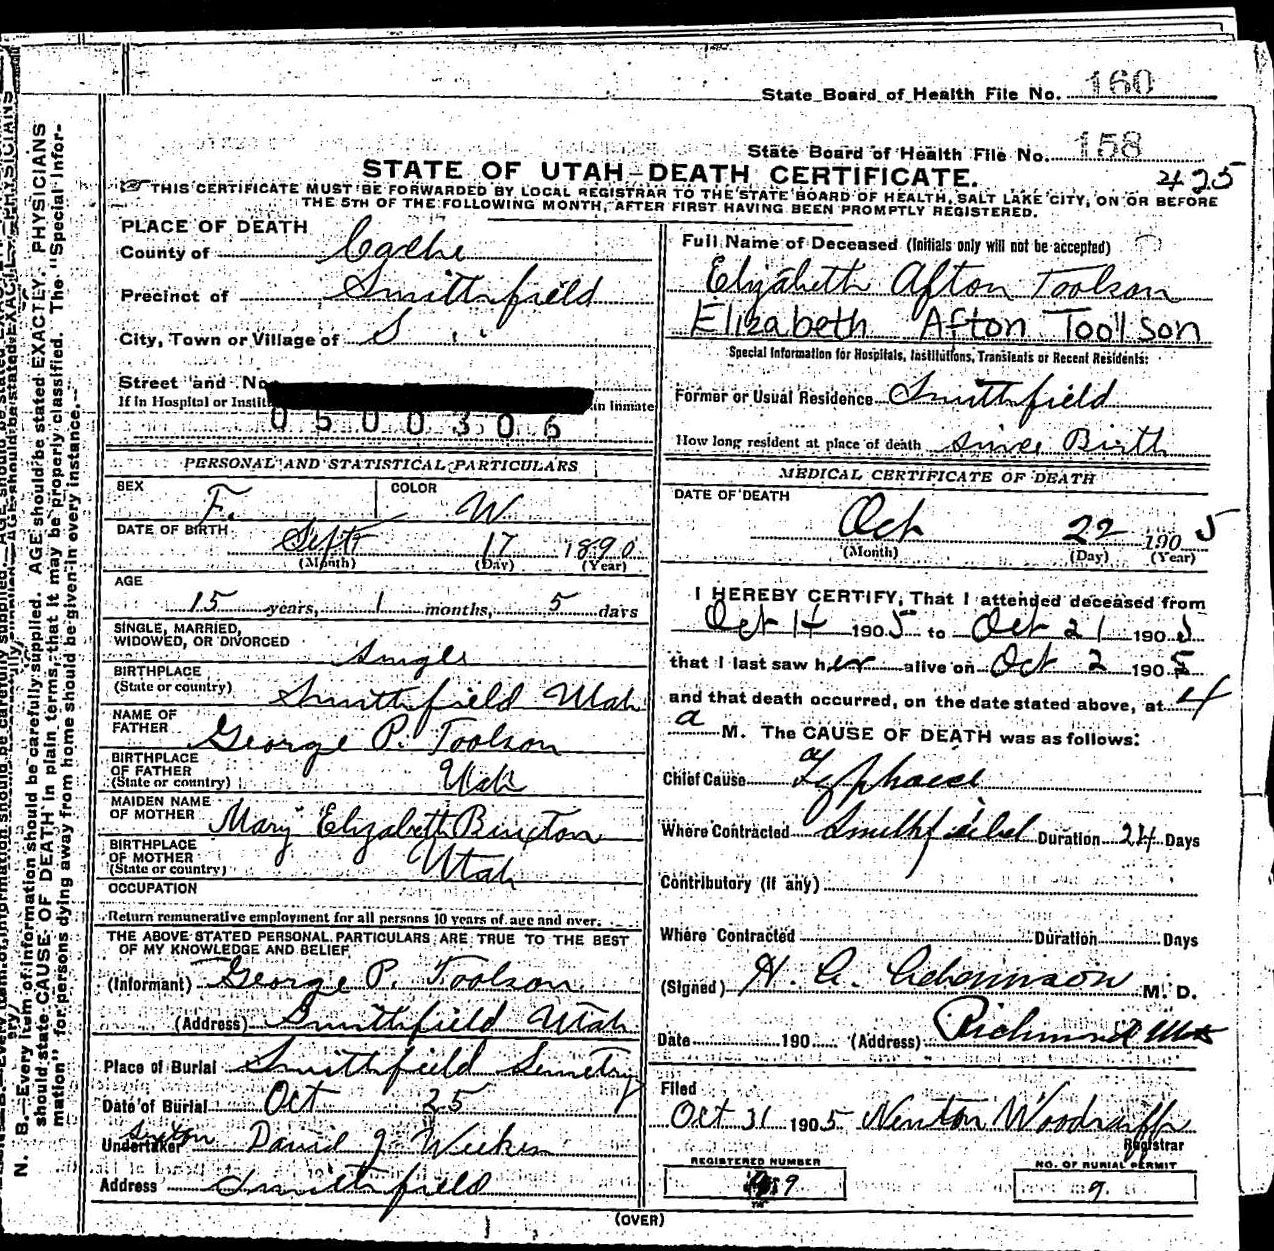 State Board of Health File No. 160
State Board of Health File No. 158
STATE OF UTAH-DEATH CERTIFICATE.
425
THIS CERTIFICATE MUST BE FORWARDED BY LOCAL REGISTRAR TO THE STATE BOARD OF HEALTH, SALT LAKE CITY, ON OR BEFORE
THE 5TH OF THE FOLLOWING MONTH, AFTER FIRST HAVING BEEN PROMPTLY REGISTERED.
PLACE OF DEATH
County of Cache
Precinct of Smithfield
City, Town or Village of S " "
Street and No
If in Hospital or Instit in Inmate
0500306
PERSONAL AND STATISTICAL PARTICULARS
SEX F. COLOR W
DATE OF BIRTH Sept 17 1890
(Month) (Day) (Year)
AGE
15 years, 1 months, 5 days
SINGLE, MARRIED,
WIDOWED, OR DIVORCED Single
BIRTHPLACE
(State or country) Smithfield Utah
NAME OF
FATHER George P. Toolson
BIRTHPLACE
OF FATHER
(State or country) Utah
MAIDEN NAME
OF MOTHER Mary Elizabeth
BIRTHPLACE
OF MOTHER
(State or country) Utah
OCCUPATION
Return remunerative employment for all persons 10 years of age and over.
THE ABOVE STATED PERSONAL PARTICULARS ARE TRUE TO THE BEST
OF MY KNOWLEDGE AND BELIEF
(Informant) George P. Toolson
(Address) Smithfield Utah
Place of Burial Smithfield Semetry
Date of Burial Oct 25
Sexton
Undertaker David J. Weeks
Address Smithfield
Full Name of Deceased (Initials only will not be accepted)
Elizabeth Afton Toolson
Elizabeth Afton Toolson
Special Information for Hospitals, Institutions, Transients or Recent Residents:
Former or Usual Residence Smithfield
How long resident at place of death since Birth
MEDICAL CERTIFICATE OF DEATH
DATE OF DEATH
Oct 22 1905
(Month) (Day) (Year)
I HEREBY CERTIFY, That I attended deceased from
Oct 14 1905 to Oct 21 1905
that I last saw her alive on Oct 2 1905
and that death occurred, on the date stated above, at 4
a M. The CAUSE OF DEATH was as follows:
Chief Cause
Where Contracted Smithfield Duration 24 Days
Contributory (if any)
Where Contracted Duration Days
(Signed) H. A. Adamson M. D.
Date 190 (Address) Richmond Utah
Filed
Oct 31 1905 Newton Woodruff
Registrar
REGISTERED NUMBER
NO. OF BURIAL PERMIT
9
(OVER)
N. B.—Every item of information should be carefully supplied. AGE should be stated EXACTLY. PHYSICIANS
should state CAUSE OF DEATH in plain terms, that it may be properly classified. The "Special Infor-
mation" for persons dying away from home should be given in every instance.